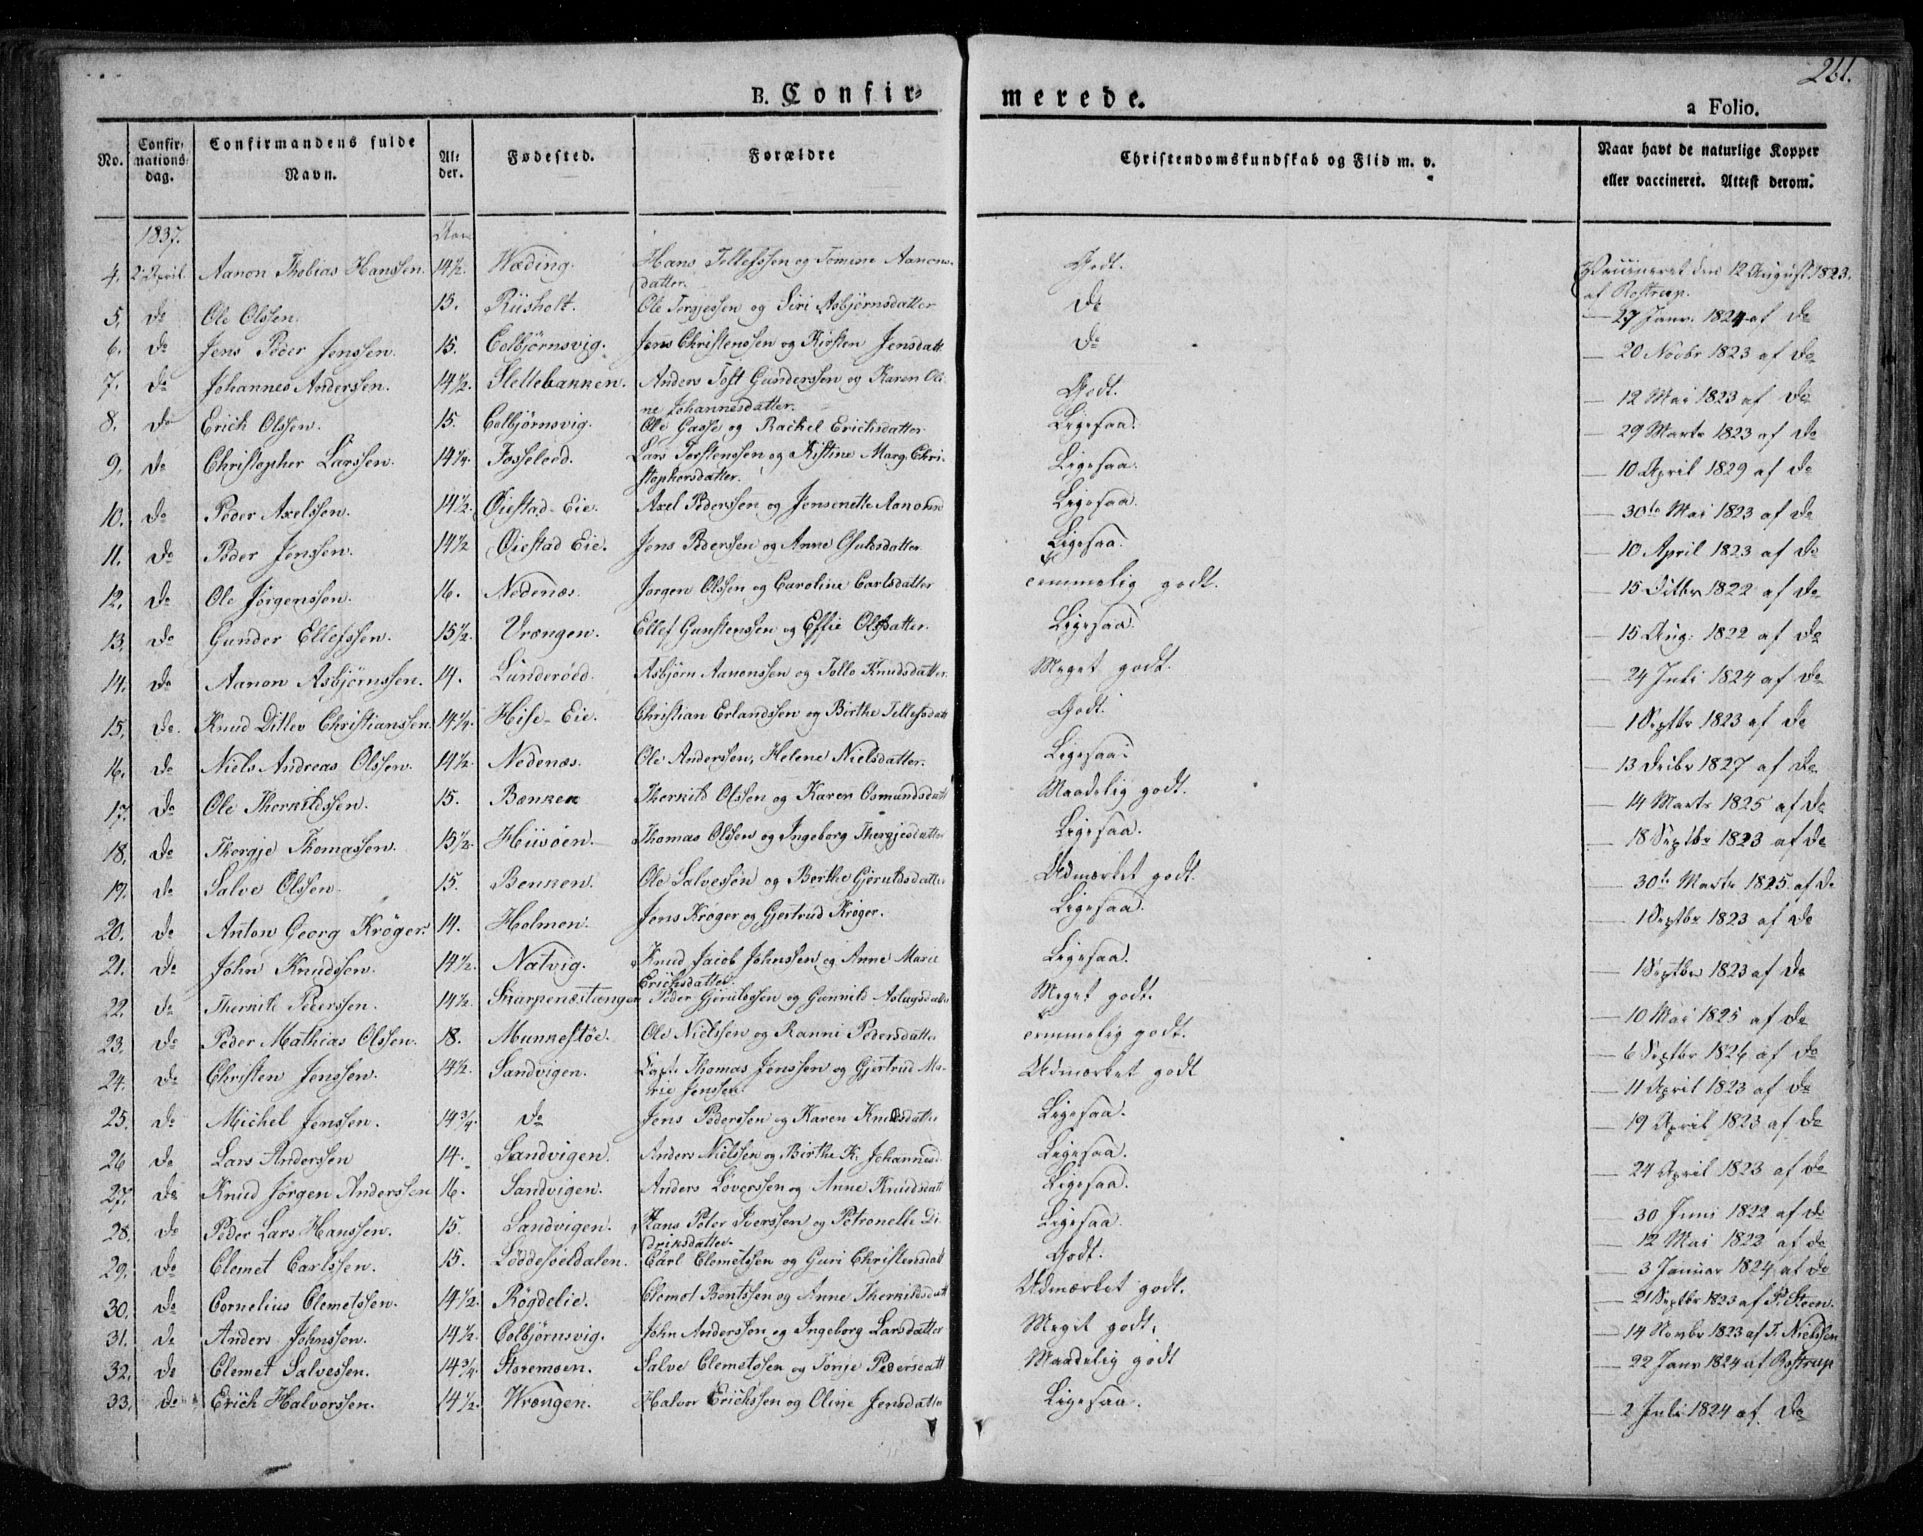 261.
B. Confirmerede. a Folio.
No. Confirmationsdag. Confirmandens fulde Navn. Alder. Fødested. Forældre Christendomskundskab og Flid m. v. Naar havt de naturlige Kopper eller vaccineret. Attest derom.
1837. Aar
4. 2 April. Aanon Thobias Hanssen. 14½. Wæding. Hans Tellefssen og Tomine Aanonsdatter. Godt. Vaccineret den 12 August 1823. af Rostrup.
5. do Ole Olssen. 15. Riisholt. Ole Tergjessen og Siri Asbjørnsdatter do — 27 Janv. 1824 af do
6. do Jens Peder Jenssen. 15. Colbjørnsvig. Jens Christenssen og Kirsten Jensdatt do — 20 Novbr 1823 af do
7. do Johannes Anderssen. 14½ Slettebakken. Anders Toft Gunderssen og Karen Oline Johannesdatter. Godt. — 12 Mai 1823 af do
8. do Erick Olssen. 15. Colbjørnsvig. Ole Gasse og Rachel Ericksdatter Ligesaa. — 29 Marts 1823 af do
9. do Christopher Larssen. 14¼. Fosseloed. Lars Terstenssen og Kistine Marg. Christophersdatter. Ligesaa. — 10 April 1829 af do
10. do Peder Axelssen. 14½. Øiestad-Eie. Axel Pederssen og Jensenette Aanonsd Ligesaa. — 30te Mai 1823 af do
11. do Peder Jenssen. 14½ Øiestad Eie. Jens Pederssen og Anne Ligesaa. — 10 April 1823 af do
12. do Ole Jørgenssen. 16. Nedenæs. Jørgen Olssen og Caroline Carlsdatter Temmelig godt. — 15 1822 af do
13. do Gunder Ellefssen. 15½. Vrængen. Ellef Gunstenssen og Eflie Olsdatter. Ligesaa. — 15 Aug: 1822 af do
14. do Aanon Asbjørnssen. 14. Lunderød. Asbjørn Aanonssen og Tollo Knudsdatter. Meget godt. — 24 Juli 1824 af do
15. do. Knud Ditlev Christianssen. 14¼. Hise-Eie. Christian Erlandssen og Birthe Tellefsdatt Godt. — 1 Septbr 1823 af do
16. do Niels Andreas Olssen. 14½. Nedenæs. Ole Anderssen, Helene Nielsdatter. Ligesaa. — 13 Decbr 1827 af do
17. do Ole Therkildssen. 15. Bænken Therkild Olssen og Karen Osmundsdatt Maadelig godt. — 14 Marts 1825 af do
18. do Thorgje Thomassen. 15½. Hiisøen. Thomas Olssen og Ingeborg Thergjesdatter Ligesaa. — 18 Septbr 1823 af do
19. do Salve Olssen. 15. Benken. Ole Salvessen og Berthe Gjeruldsdatter Udmærket godt. — 30te Marts 1825 af do
20. do Anton Georg Krøger. 14. Holmen. Jens Krøger og Gjertrud Krøger. Ligesaa. — 1 Septbr 1823 af do
21. do John Knudssen. 14½. Natvig. Knud Jacob Johnssen og Anne Marie Ericksdatter. Ligesaa. — 1 Septbr 1823 af do
22. do Therkild Pederssen. 14½. Skarpenæstangen Peder Gjeruldssen og Gunnild Aslagsdatter Meget godt. — 10 Mai 1825 af do
23. do Peder Mathias Olssen. 18. Munkestøe. Ole Nielssen og Ranni Pedersdatter Temmelig godt. — 6 Septbr 1826 af do
24. do Christen Jenssen. 14½. Sandvigen. Capt: Thomas Jenssen og Gjertrud Marie Jenssen. Udmærket godt — 11 April 1823 af do
25. do Michel Jenssen. 14¾. do Jens Pederssen og Karen Knudsdatter Ligesaa. — 19 April 1823 af do
26 do Lars Anderssen 14. Sandvigen. Anders Nielssen og Birthe K. Johannesd. Ligesaa. — 24 April 1823 af do
27. do Knud Jørgen Anderssen 16. Sandvigen. Anders Loverssen og Anne Knudsdatt Ligesaa. — 30 Juni 1822 af do
28. do Peder Lars Hanssen. 15. Sandvigen. Hans Peter Iverssen og Petronelle Didriksdatter. Ligesaa. — 12 Mai 1822 af do
29. do Clemet Carlssen. 15. Løddesøeldalen. Carl Clemetssen og Guri Christensdatt Godt. — 3 Januar 1824 af do
30. do Cornelius Clemetssen. 14½. Røgdelie. Clemet Bentssen og Anne Therkildsdatt Udmærket godt. — 21 Septbr 1823 af P. Steen.
31. do Anders Johnssen. 14½. Colbjørnsvig. John Anderssen og Ingeborg Larsdatter Meget godt. — 14 Novbr 1823 af T. Nielssen
32. do Clemet Salvessen. 14¾. Storemoen. Salve Clemetssen og Tonje Pedersdatt Maadelig godt — 22 Janv 1824 af Rostrup
33. do Erick Halvorssen. 14½. Wrængen. Halvor Erickssen og Oline Jensdatter Ligesaa. — 2 Juli 1824 af do